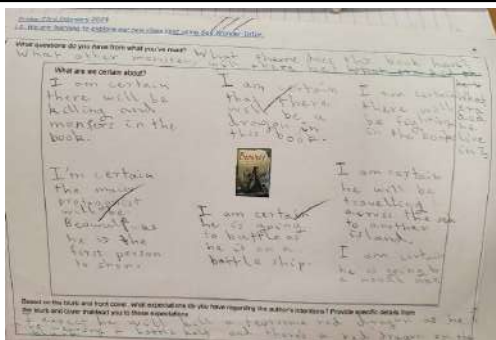 Friday 23rd February 2024
L.O. We are learning to explore our new class text using our Wonder
What questions do you have from what you've read?
What other monsters What theme does this book have?
What are we certain about?
I am certain
there will be
killing and
monsters in the
book.
I am certain
that there
will be a
dragon in
this book.
I am certain
there will
be fighting
in the book
Beowulf
I'm certain
the main
protagonist
will be
Beowulf as
he is the
first person
to show.
I am certain
he is going
to battle as
he is on a
battle ship.
I am certain
he will be
travelling
across the sea
to another
island.
I am certain
he is going to
Based on the blurb and front cover, what expectations do you have regarding the author's intentions? Provide specific details from
the blurb and cover that lead you to these expectations
I expect he will a red dragon as he
is a battle and there's a red dragon on the